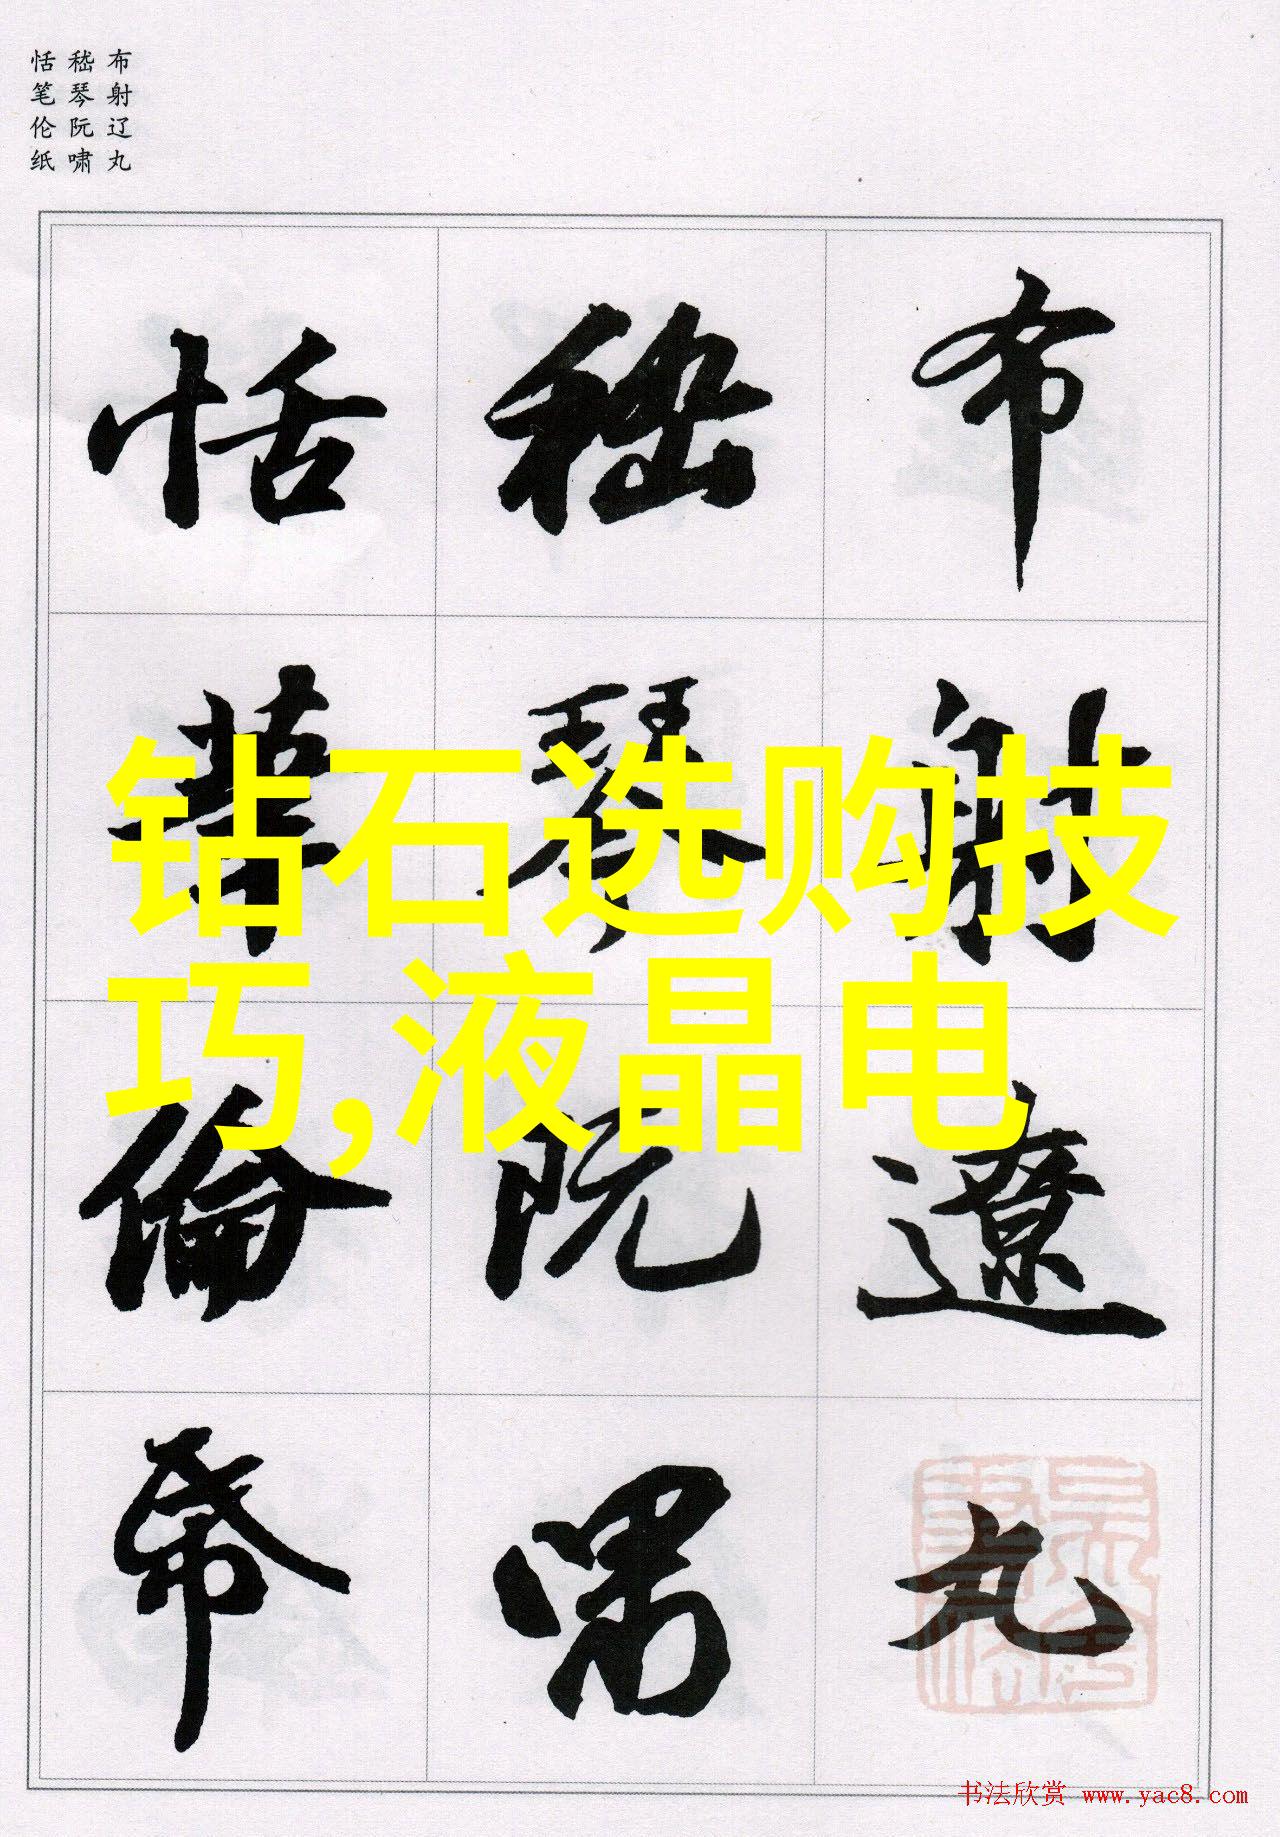 布射辽丸
嵇琴阮啸
恬笔伦纸
布射遼丸
嵇琴阮嘯
恬筆倫帋
钻石选购技
巧,液晶电
书法欣赏 www.yac8.com